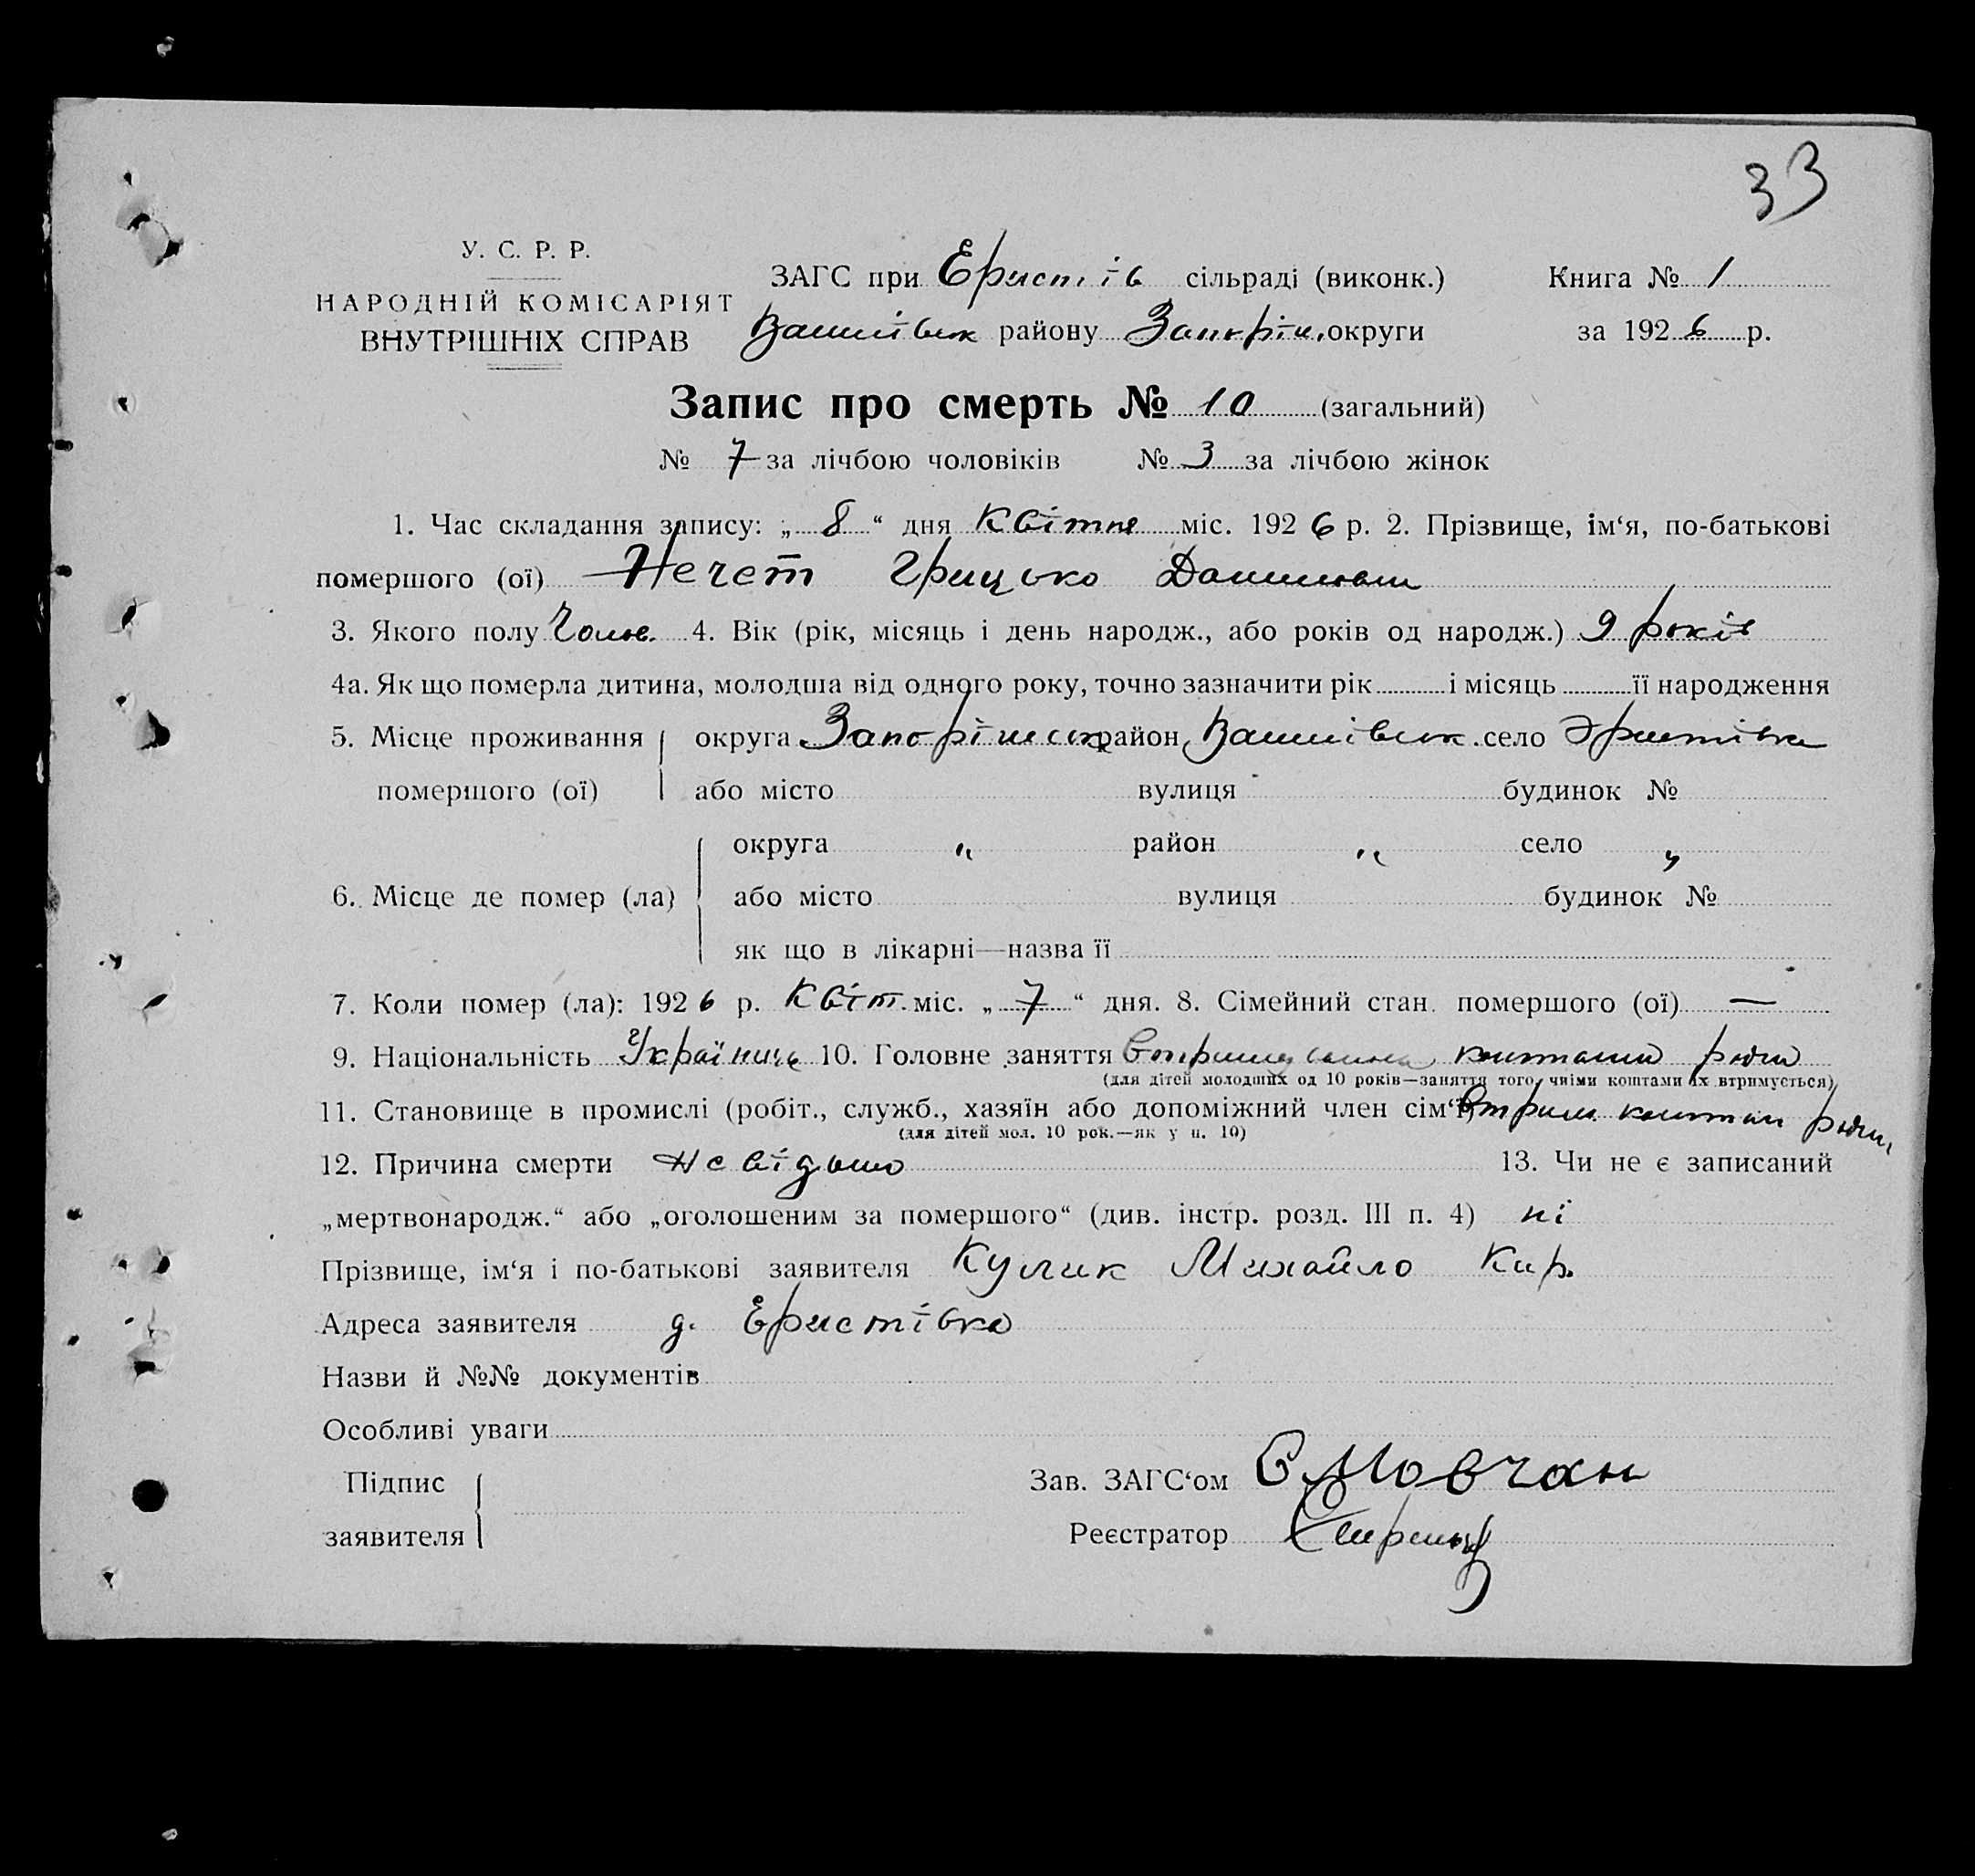 33
У. С. Р. Р.
НАРОДНІЙ КОМІСАРІЯТ
ВНУТРІШНІХ СПРАВ
ЗАГС при Ерист. ів сільраді (виконк.) Книга № 1
району округи за 1926 р.
Запис про смерть № 10 (загальний)
№ 7 за лічбою чоловіків № 3 за лічбою жінок
1. Час складання запису: „ 8 “ дня Квітня міс. 1926 р. 2. Прізвище, ім‘я, по-батькові
помершого (ої) Нечет Грицько Данилович
3. Якого полу Чолов. 4. Вік (рік, місяць і день народж., або років од народж.) 9 років
4а. Як що померла дитина, молодша від одного року, точно зазначити рік і місяць її народження
5. Місце проживання округа Запоріжськ район село Еристівка
помершого (ої) або місто вулиця будинок №
округа „ район „ село „
6. Місце де помер (ла) або місто вулиця будинок №
як що в лікарні—назва її
7. Коли помер (ла): 1926 р. Квіт. міс. „ 7 “ дня. 8. Сімейний стан помершого (ої) —
9. Національність Українець 10. Головне заняття коштами рідні
(для дітей молодших од 10 років—заняття того, чиїми коштами їх втримується)
11. Становище в промислі (робіт., служб., хазяїн або допоміжний член сім‘ї) втрим. коштам рідні
(для дітей мол. 10 рок.—як у п. 10)
12. Причина смерти невідомо 13. Чи не є записаний
„мертвонародж.“ або „оголошеним за помершого“ (див. інстр. розд. III п. 4) ні
Прізвище, ім‘я і по-батькові заявителя Кулик Михайло Кир.
Адреса заявителя д. Еристівка
Назви й №№ документів
Особливі уваги
Підпис
заявителя
Зав. ЗАГС‘ом Мовчан
Реєстратор